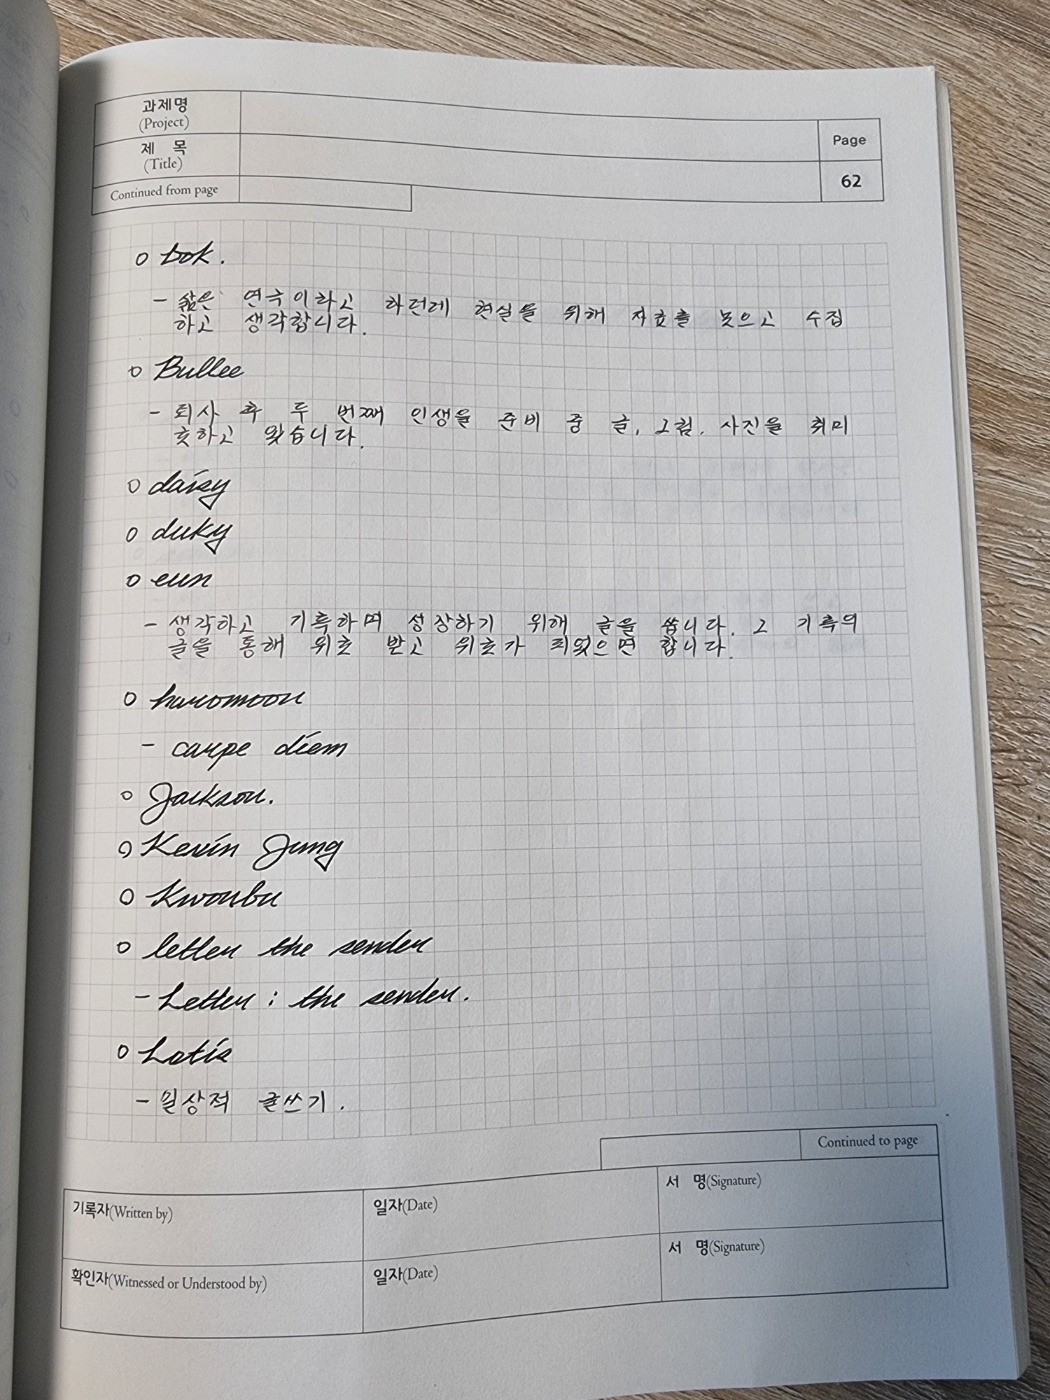 과제명
(Project)
제 목
(Title)
Page
62
Continued from page
o bok.
- 삶은 연극이라고 하던데 현실을 위해 자료를 모으고 수집
하고 생각합니다.
o Bullee
- 퇴사 후 두 번째 인생을 준비 중 글, 그림, 사진을 취미
로하고 있습니다.
o daisy
o duky
o eun
- 생각하고 기록하며 성장하기 위해 글을 씁니다. 그 기록의
글을 통해 위로 받고 위로가 되었으면 합니다.
o haromoon
- carpe diem
o Jackson.
o Kevin Jung
o Kwonbu
o letter the sender
- Letter : the sender.
o Lotis
- 일상적 글쓰기.
Continued to page
기록자(Written by)
일자(Date)
서 명(Signature)
확인자(Witnessed or Understood by)
일자(Date)
서 명(Signature)